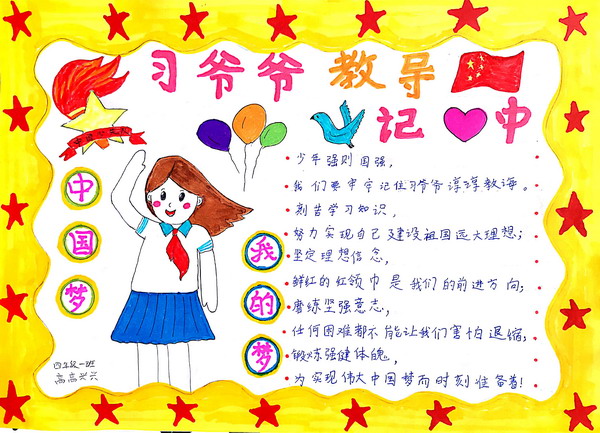 习爷爷 教导
记 中
中国梦
我的梦
少年强则国强，
我们要牢牢记住习爷爷谆谆教诲。
刻苦学习知识，
努力实现自己建设祖国远大理想；
坚定理想信念，
鲜红的红领巾是我们的前进方向；
磨练坚强意志，
任何困难都不能让我们害怕退缩；
锻炼强健体魄，
为实现伟大中国梦而时刻准备着！
四年级一班
高高兴兴